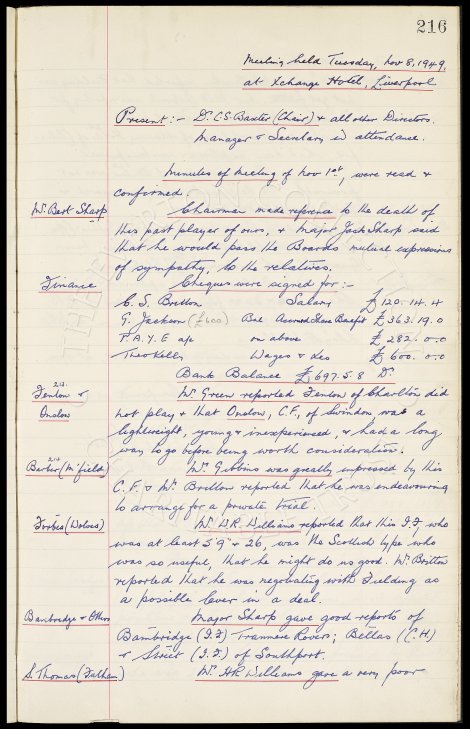 216
Meeting held Tuesday, Nov 8, 1949,
at Xchange Hotel, Liverpool
Present :- Dr. C.S. Baxter (Chair) & all other Directors.
Manager & Secretary in attendance.
Minutes of Meeting of Nov 1st, were read &
confirmed.
Mr. Bert Sharp
Chairman made reference to the death of
this past player of ours, & Major Jack Sharp said
that he would pass the Boards mutual expressions
of sympathy, to the relatives.
Finance
Cheques were signed for :-
C. S. Britton Salary £120. 14. 4
G. Jackson (£600) Bal Accrued Share Benefit £363. 19. 0
P. A. Y. E a/c on above £282. 0. 0
Theo Kelly Wages & Exs £600. 0. 0
Bank Balance £697. 5. 8 Dr.
Fenton & 213
Onslow
Mr. Green reported Fenton of Charlton did
not play & that Onslow, C.F., of Swindon, was a
lightweight, young & inexperienced, & had a long
way to go before being worth consideration.
214
Barber (M'field)
Mr. Gibbins was greatly impressed by this
C.F. & Mr Britton reported that he was endeavouring
to arrange for a private trial.
Forbes (Wolves)
Mr. W.R. Williams reported that this I.F, who
was at least 5' 9" & 26, was the Scottish type who
was so useful, that he might do us good. Mr. Britton
reported that he was negotiating with Fielding as
a possible lever in a deal.
Bainbridge & Others
Major Sharp gave good reports of
Bainbridge (I.F) Tranmere Rovers; Bellas (C.H)
& Street (I.F.) of Southport.
S. Thomas (Fulham)
Mr. H.R. Williams gave a very poor